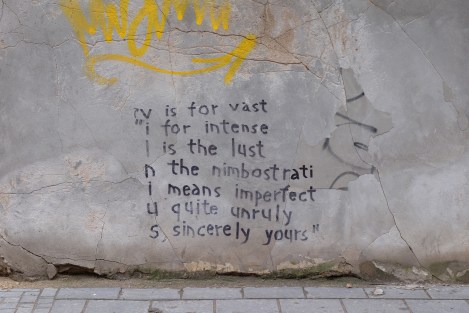 "v is for vast
"i for intense
l is the lust
n the nimbostrati
i means imperfect
u quite unruly
s, sincerely yours"